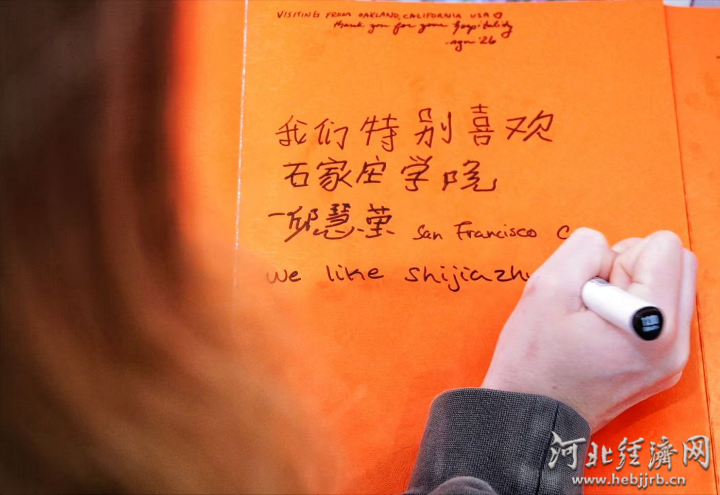 VISITING FROM OAKLAND, CALIFORNIA USA ♡
thank you for your hospitality
'26
我们特别喜欢
石家庄学院
一邱慧莹 San Francisco C
we like shijiazhu
河北经济网
www.hebjjrb.cn